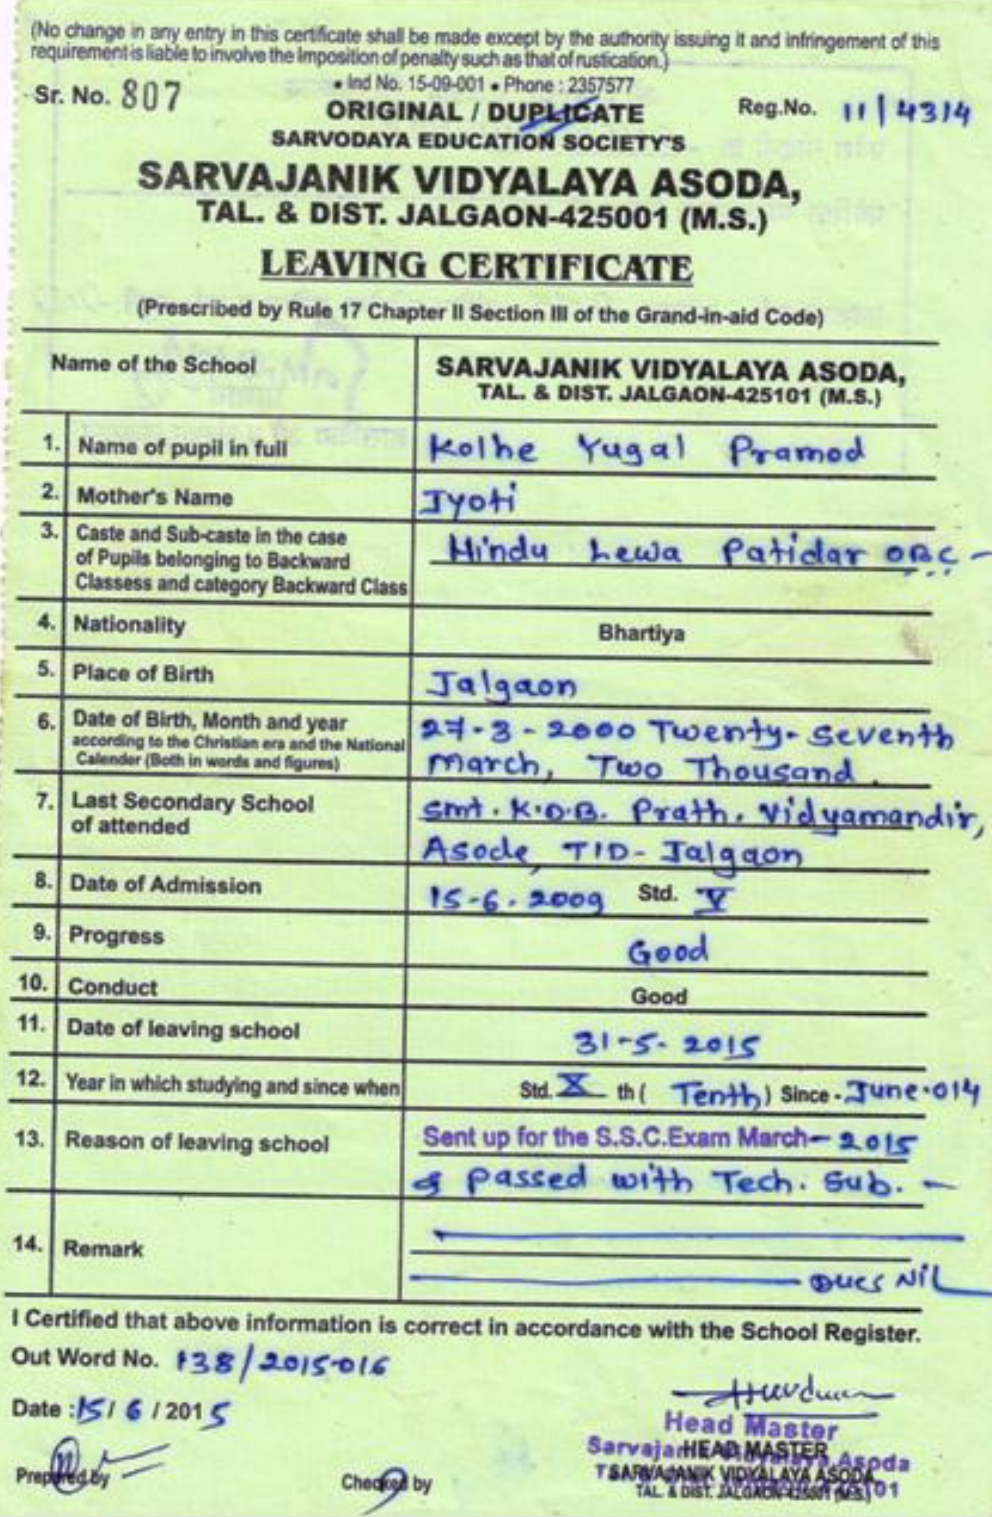 (No change in any entry in this certificate shall be made except by the authority issuing it and infringement of this
requirement is liable to involve the Imposition of penalty such as that of rustication.)
• Ind No. 15-09-001 • Phone : 2357577
Sr. No. 807
ORIGINAL / DUPLICATE
Reg.No. 11/4314
SARVODAYA EDUCATION SOCIETY'S
SARVAJANIK VIDYALAYA ASODA,
TAL. & DIST. JALGAON-425001 (M.S.)
LEAVING CERTIFICATE
(Prescribed by Rule 17 Chapter II Section III of the Grand-in-aid Code)
Name of the School
SARVAJANIK VIDYALAYA ASODA,
TAL. & DIST. JALGAON-425101 (M.S.)
1. Name of pupil in full Kolhe Yugal Pramod
2. Mother's Name Jyoti
3. Caste and Sub-caste in the case
of Pupils belonging to Backward
Classess and category Backward Class
Hindu Lewa Patidar OBC -
4. Nationality Bhartiya
5. Place of Birth Jalgaon
6. Date of Birth, Month and year
according to the Christian era and the National
Calender (Both in words and figures)
27-3-2000 Twenty-Seventh
March, Two Thousand.
7. Last Secondary School
of attended
Smt. K.D.B. Prath. Vidyamandir,
Asode, T/D- Jalgaon
8. Date of Admission 15-6-2009 Std. V
9. Progress Good
10. Conduct Good
11. Date of leaving school 31-5-2015
12. Year in which studying and since when Std. X th ( Tenth ) Since - June-014
13. Reason of leaving school Sent up for the S.S.C.Exam March- 2015
& passed with Tech. Sub. -
14. Remark
Dues NIL
I Certified that above information is correct in accordance with the School Register.
Out Word No. 138/2015-016
Date : 15/ 6 / 2015
Head Master
Sarvajanik Vidyalaya Asoda
HEAD MASTER
SARVAJANIK VIDYALAYA ASODA,
TAL. & DIST. JALGAON-425001 (M.S.)
Prepared by
Checked by